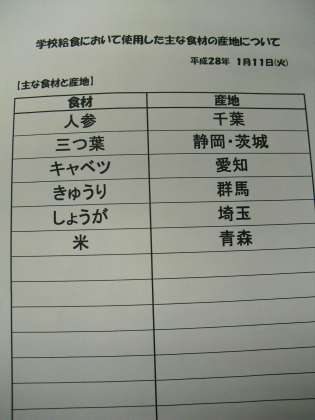 学校給食において使用した主な食材の産地について
平成28年 1月11日(火)
【主な食材と産地】
食材 産地
人参 千葉
三つ葉 静岡・茨城
キャベツ 愛知
きゅうり 群馬
しょうが 埼玉
米 青森